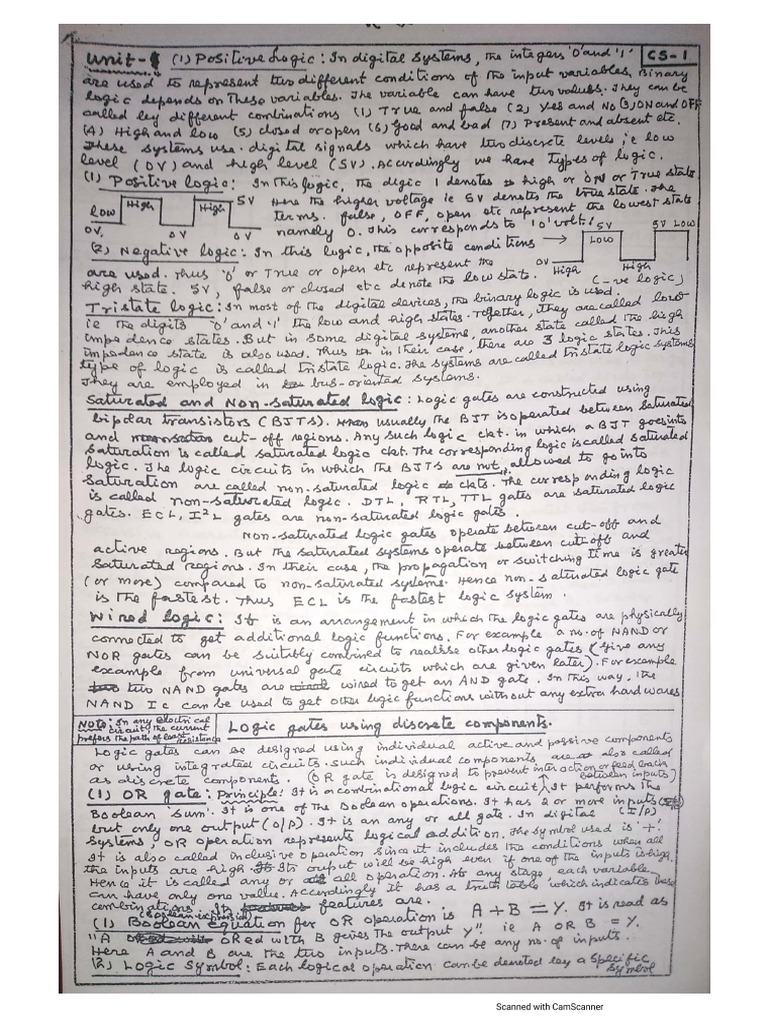 Unit-1 (1) Positive Logic: In digital systems, the integers '0' and '1' CS-1
are used to represent two different conditions of the input variables. Binary
logic depends on these variables. The variable can have two values. They can be
called by different combinations (1) True and false (2) Yes and No (3) ON and OFF
(4) High and low (5) closed or open (6) Good and bad (7) Present and absent etc.
These systems use digital signals which have two discrete levels, i.e low
level (0V) and high level (5V). Accordingly we have types of logic.
(1) Positive logic: In this logic, the digit 1 denotes high or ON or True state
High High 5V Here the higher voltage ie 5V denotes the true state. The
LOW terms. false, OFF, open etc represent the lowest state
0V. 0V 0V namely 0. This corresponds to '0' volt.
(2) Negative logic: In this logic, the opposite conditions → 5V LOW 5V LOW
are used. Thus '0' or True or open etc represent the 0V High High
high state. 5V, false or closed etc denote the low state. (-ve logic)
Tristate logic: In most of the digital devices, the binary logic is used.
ie the digits '0' and '1' the low and high states. Together, they are called low
impedence states. But in some digital systems, another state called the high
impedence state is also used. Thus in their case, there are 3 logic states. This
type of logic is called tristate logic. The systems are called tristate logic systems
They are employed in bus-oriented systems.
Saturated and Non-saturated logic: Logic gates are constructed using
bipolar transistors (BJTS). usually the BJT is operated between saturated
and cut-off regions. Any such logic ckt. in which a BJT goes into
saturation is called saturated logic ckt. The corresponding logic is called saturated
logic. The logic circuits in which the BJTS are not allowed to go into
saturation are called non-saturated logic ckts. The corresponding logic
is called non-saturated logic. DTL, RTL, TTL gates are saturated logic
gates. ECL, I²L gates are non-saturated logic gates.
Non-saturated logic gates operate between cut-off and
active regions. But the saturated systems operate between cut-off and
saturated regions. In their case, the propagation or switching time is greater
(or more) compared to non-saturated systems. Hence non-saturated logic gate
is the fastest. Thus ECL is the fastest logic system.
Wired logic: It is an arrangement in which the logic gates are physically
connected to get additional logic functions. For example a no. of NAND or
NOR gates can be suitably combined to realise other logic gates (Give any
example from universal gate circuits which are given later). For example
two NAND gates are wired to get an AND gate. In this way, the
NAND Ic can be used to get other logic functions without any extra hardwares
Note: In any electrical
circuit, the current
prefers the path of least resistance
Logic gates using discrete components.
Logic gates can be designed using individual active and passive components
or using integrated circuits. Such individual components are also called
as discrete components. (OR gate is designed to prevent interaction or feed back between inputs)
(1) OR gate: Principle: It is a combinational logic circuit. It performs the
Boolean 'sum'. It is one of the Boolean operations. It has 2 or more inputs
but only one output (O/P). It is an any or all gate. In digital (I/P)
systems, OR operation represents logical addition. The symbol used is '+'.
It is also called inclusive operation since it includes the conditions when all
the inputs are high. Its output will be high even if one of the inputs is high.
Hence it is called any or all operation. At any stage each variable
can have only one value. Accordingly it has a truth table which indicates these
combinations. Its features are.
(1) Boolean Equation (Boolean expression) for OR operation is A + B = Y. It is read as
"A ORed with B gives the output Y". ie A OR B = Y.
Here A and B are the two inputs. There can be any no. of inputs.
(2) Logic Symbol: Each logical operation can be denoted by a specific
symbol
Scanned with CamScanner